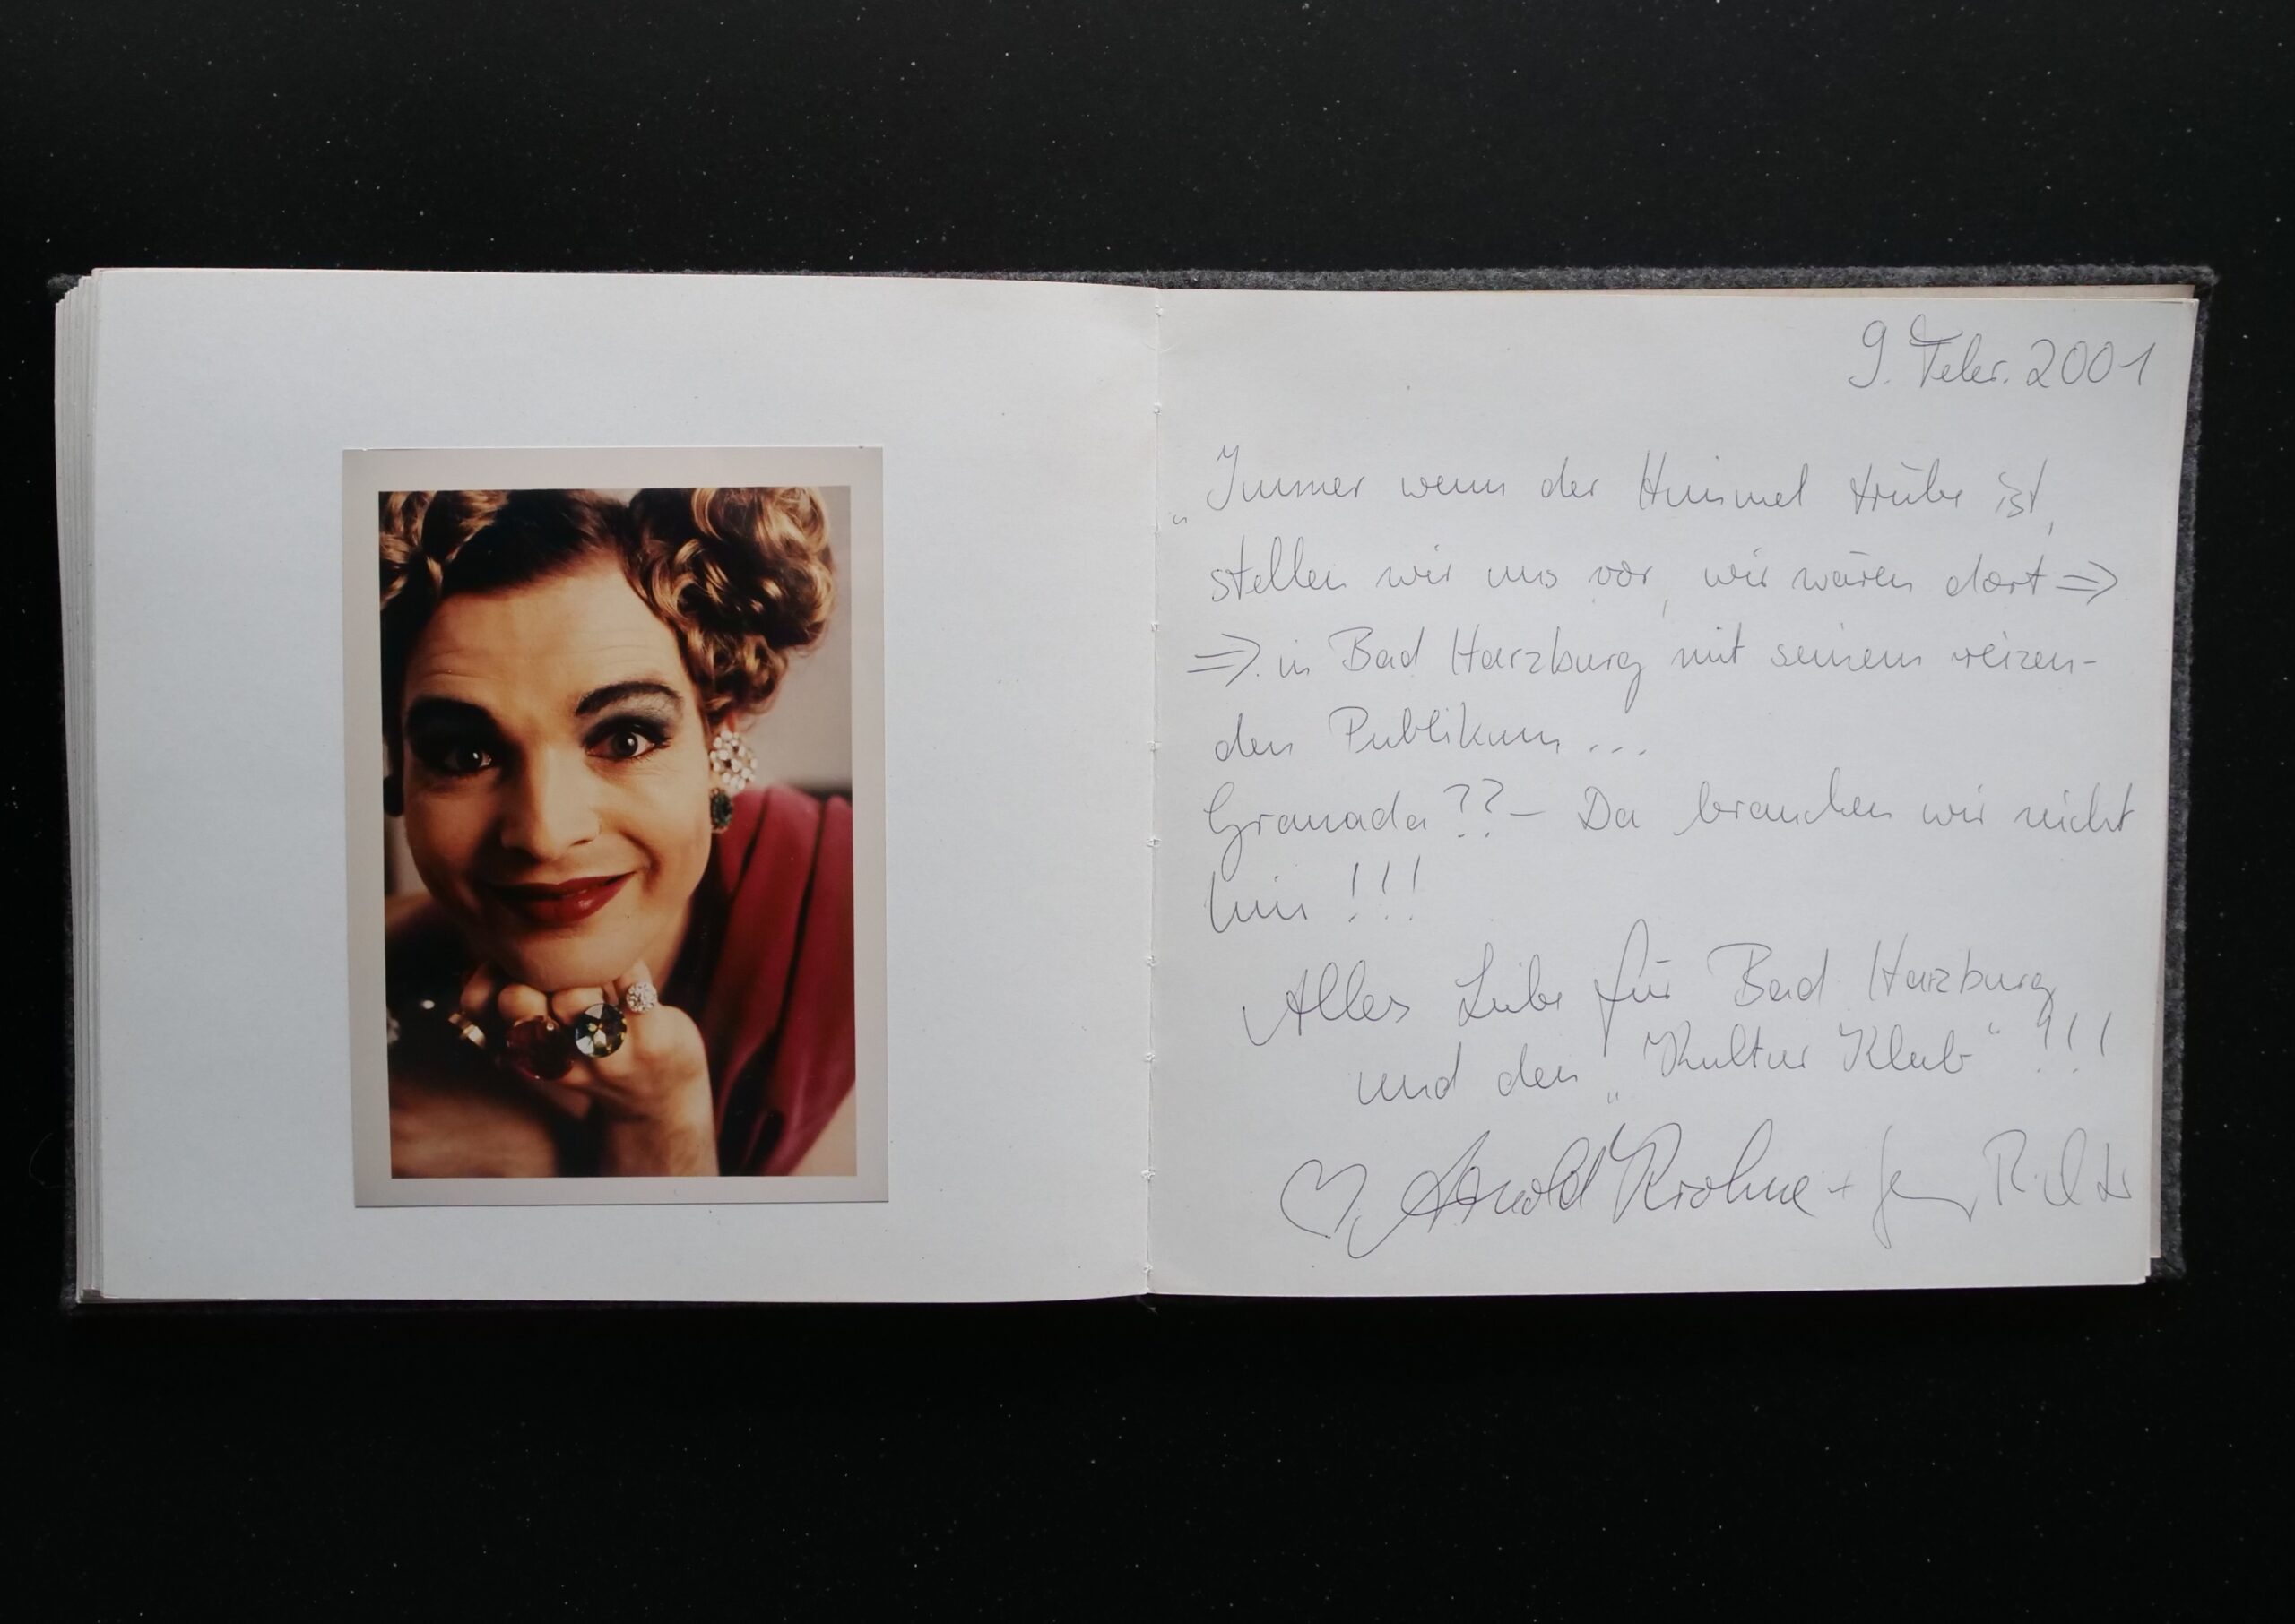 9. Febr. 2001
„Immer wenn der Himmel trübe ist,
stellen wir uns vor, wir wären dort ⇒
⇒ in Bad Harzburg mit seinem reizen-
den Publikum ...
Granada?? – Da brauchen wir nicht
hin!!!
Alles Liebe für Bad Harzburg
und den „Kultur Klub“!!!
♡ Arnold Krohne +